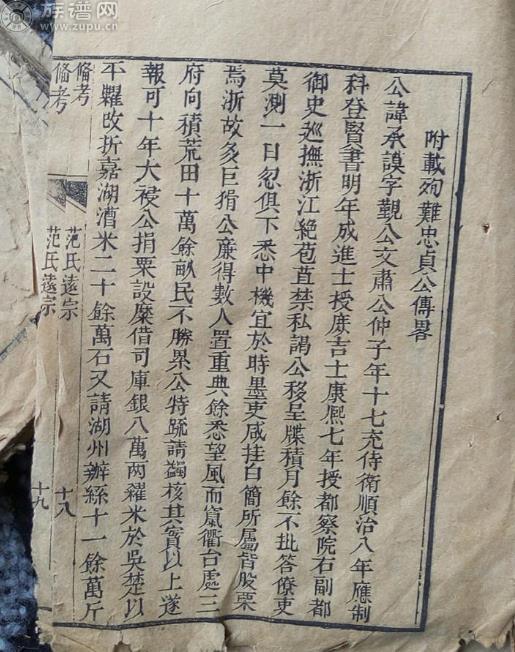 族谱网
www.zupu.cn
附載殉難忠貞公傳畧
公諱承謨字覲公文肅公仲子年十七充侍衛順治八年應制
科登賢書明年成進士授庶吉士康熙七年授都察院右副都
御史巡撫浙江絶苞苴禁私謁公移呈牒積月餘不批答僚吏
莫測一日忽俱下悉中機宜於時墨吏咸挂白簡所屬皆股栗
焉浙故多巨猾公廉得數人置重典餘悉望風而竄衢台處三
府向積荒田十萬餘畝民不勝累公特疏請蠲核其實以上遂
報可十年大祲公捐粟設糜借司庫銀八萬兩糴米於吳楚以
平糶改折嘉湖漕米二十餘萬石又請湖州辦絲十一餘萬斤
備考
范氏遠宗
十八
備考
范氏遠宗
十九